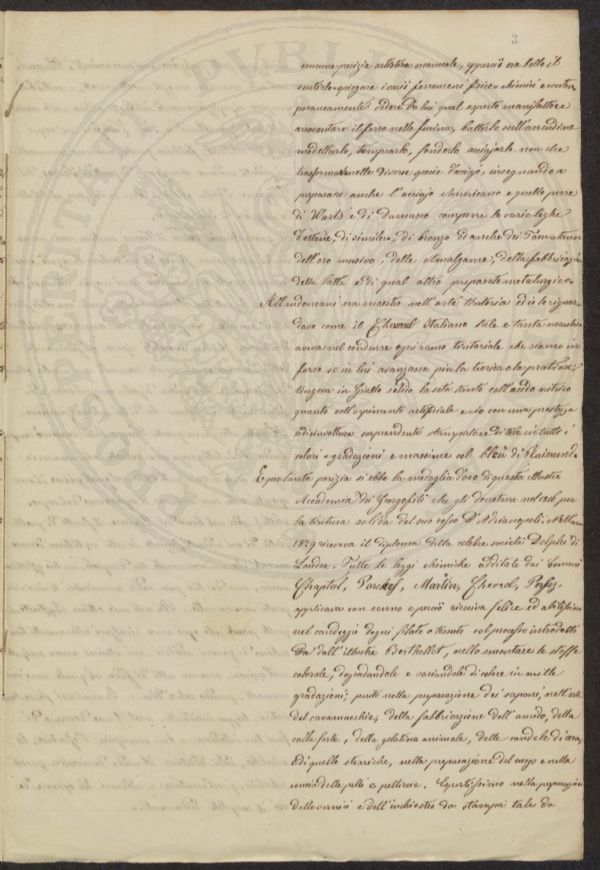 3
comune perizia artistica manuale, epperciò era bello il
sentirlo spiegare i varii fenomeni fisico-chimici e contem
poraneamente vedere da lui qual esperto manifattore
arroventare il ferro nella fucina, batterlo sull'ancudine
modellarlo, temprarlo, fonderlo acciajarlo non che
trasformarlo nelle diverse specie d'acciajo, insegnando a
preparare anche l'acciajo Americano e quello pure
di Warts e di Damasco comporre le varie leghe
d'ottone, di similoro, di bronzo ed anche dei Tamatam
dell'oro musivo, delle Amalgame, della fabbricazione
della latta e di qual altro preparato metalurgico.
All'indomani era maestro nell'arte tintoria ed io lo riguar
davo come il Chevreul Italiano tale e tanta maestria
aveva nel condurre ogni ramo tintoriale che siamo in
forse se in lui avanzasse più la teorica o la pratica;
tingeva in Giallo solido la seta tanto coll'acido nitrico
quanto coll'orpimento artificiale e ciò con una prestezza
e disinvoltura sorprendente stampatore di tele in tutti i
colori e gradazioni e massime col bleu di Raimond.
E per tanta perizia si ebbe la medaglia d'oro di questa illustre
Accademia dei Georgofili che gli decretava nel per
la tintura solida del suo rosso d'Adrianopoli. Nell'anno
1829 riceveva il diploma della celebre società Delphi di
Londra. Tutte le leggi chimiche additate dai sommi
Chaptal, Martin, Chevrol,
applicava con senno e perciò riesciva felice ed abilissimo
nel candeggio d'ogni filato o tessuto col processo introdotto
da dall'illustre Berthollet, nello smontare le stoffe
colorate, degradandole e variandole di colore in mille
gradazioni; perito nella preparazione dei saponi, nell'arte
del cavamacchie, della fabbricazione dell'amido, della
colla forte, della gelatina animale, delle candele di cera,
e di quelle steariche, nella preparazione del crojo e nella
concia delle pelli e pelliccie. Espertissimo nella preparazione
delle vernici e dell'inchiostro da stampa tale da